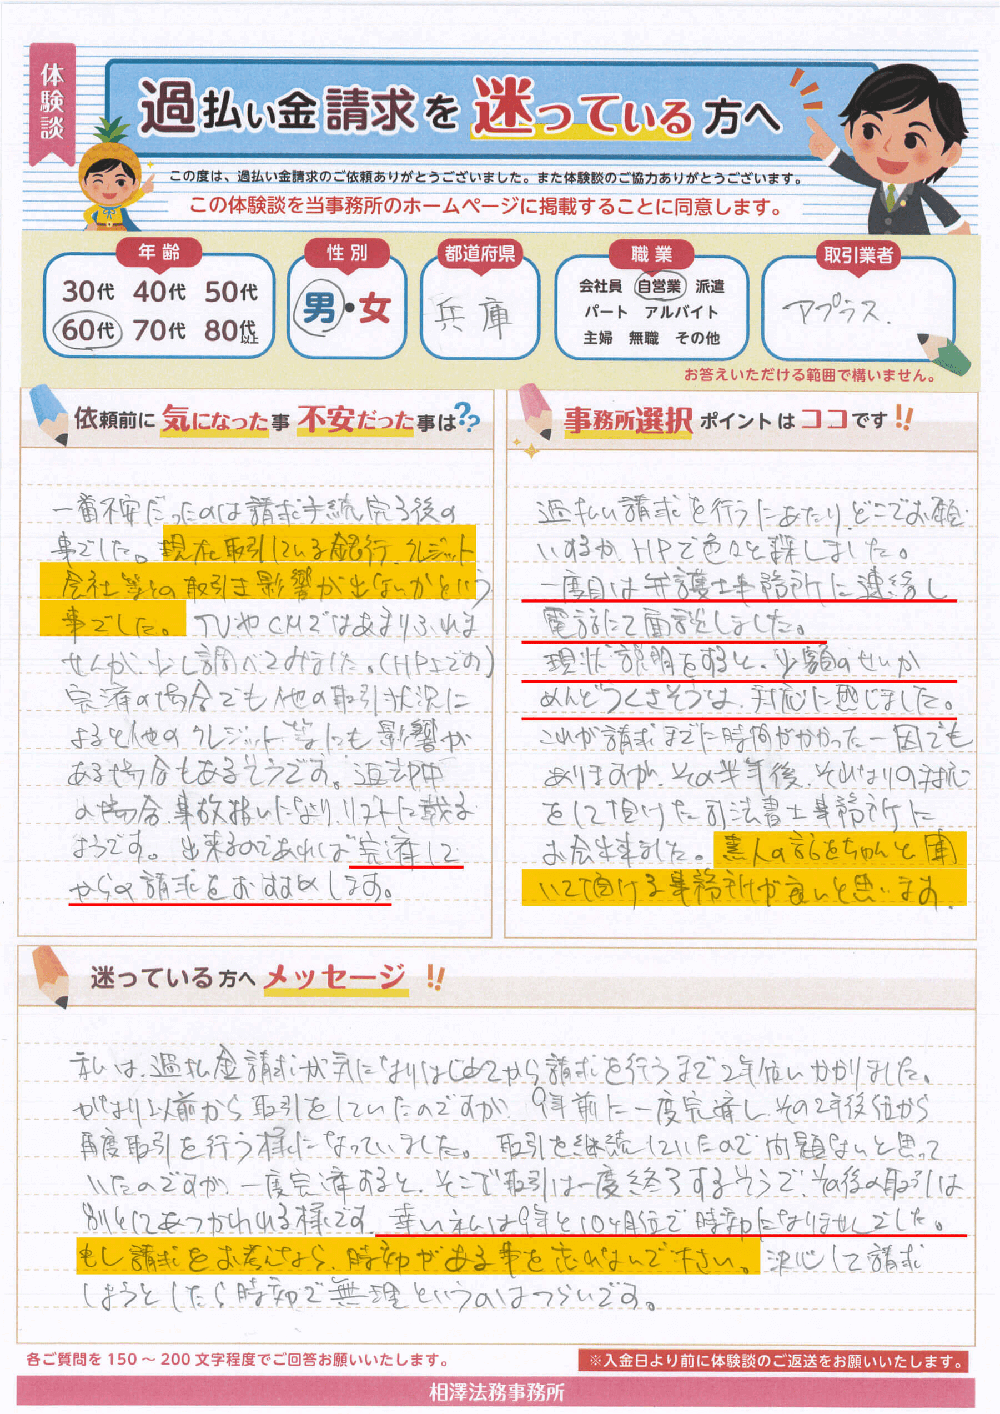 体験談
過払い金請求を迷っている方へ
この度は、過払い金請求のご依頼ありがとうございました。また体験談のご協力ありがとうございます。
この体験談を当事務所のホームページに掲載することに同意します。
年齢
30代 40代 50代
60代 70代 80代以上
性別
男・女
都道府県
兵庫
職業
会社員 自営業 派遣
パート アルバイト
主婦 無職 その他
取引業者
アプラス.
お答えいただける範囲で構いません。
依頼前に気になった事 不安だった事は??
一番不安だったのは請求手続完了後の
事でした。現在取引している銀行、クレジット
会社等との取引き影響が出ないかという
事でした。TVやCMではあまりふれま
せんが、少し調べてみました。(HP上での)
完済の場合でも他の取引状況に
よると他のクレジット等にも影響が
ある場合もあるそうです。返却中
の場合、事故扱いになり、リストに載る
ようです。出来るのであれば完済して
からの請求をおすすめします。
事務所選択ポイントはココです!!
過払い請求を行うにあたり、どこでお願
いするか、HPで色々と探しました。
一度目は弁護士事務所に連絡し
電話にて面談しました。
現状説明をすると、少額のせいか
めんどうくさそうな、対応に感じました。
これが請求までに時間がかかった一因でも
ありますが、その半年後、そびはりの対応
をして頂けた司法書士事務所に
お会い出来ました。素人の話をちゃんと聞
いて頂ける事務所が良いと思います.
迷っている方へメッセージ!!
私は、過払金請求が気になりはじめてから請求を行うまで2年位いかかりました。
かなり以前から取引をしていたのですが、9年前に一度完済し、その2年後位から
再度取引を行う様になっていました。取引を継続していたので問題ないと思って
いたのですが、一度完済すると、そこで取引は一度終了するそうで、その後の取引は
別としてあつかわれる様です。幸い私は9年と10ヶ月位で時効になりませんでした。
もし請求をお考えなら、時効がある事を忘れないで下さい。決心して請求
しようとしたら時効で無理というのはつらいです。
各ご質問を150～200文字程度でご回答お願いいたします。
※入金日より前に体験談のご返送をお願いいたします。
相澤法務事務所